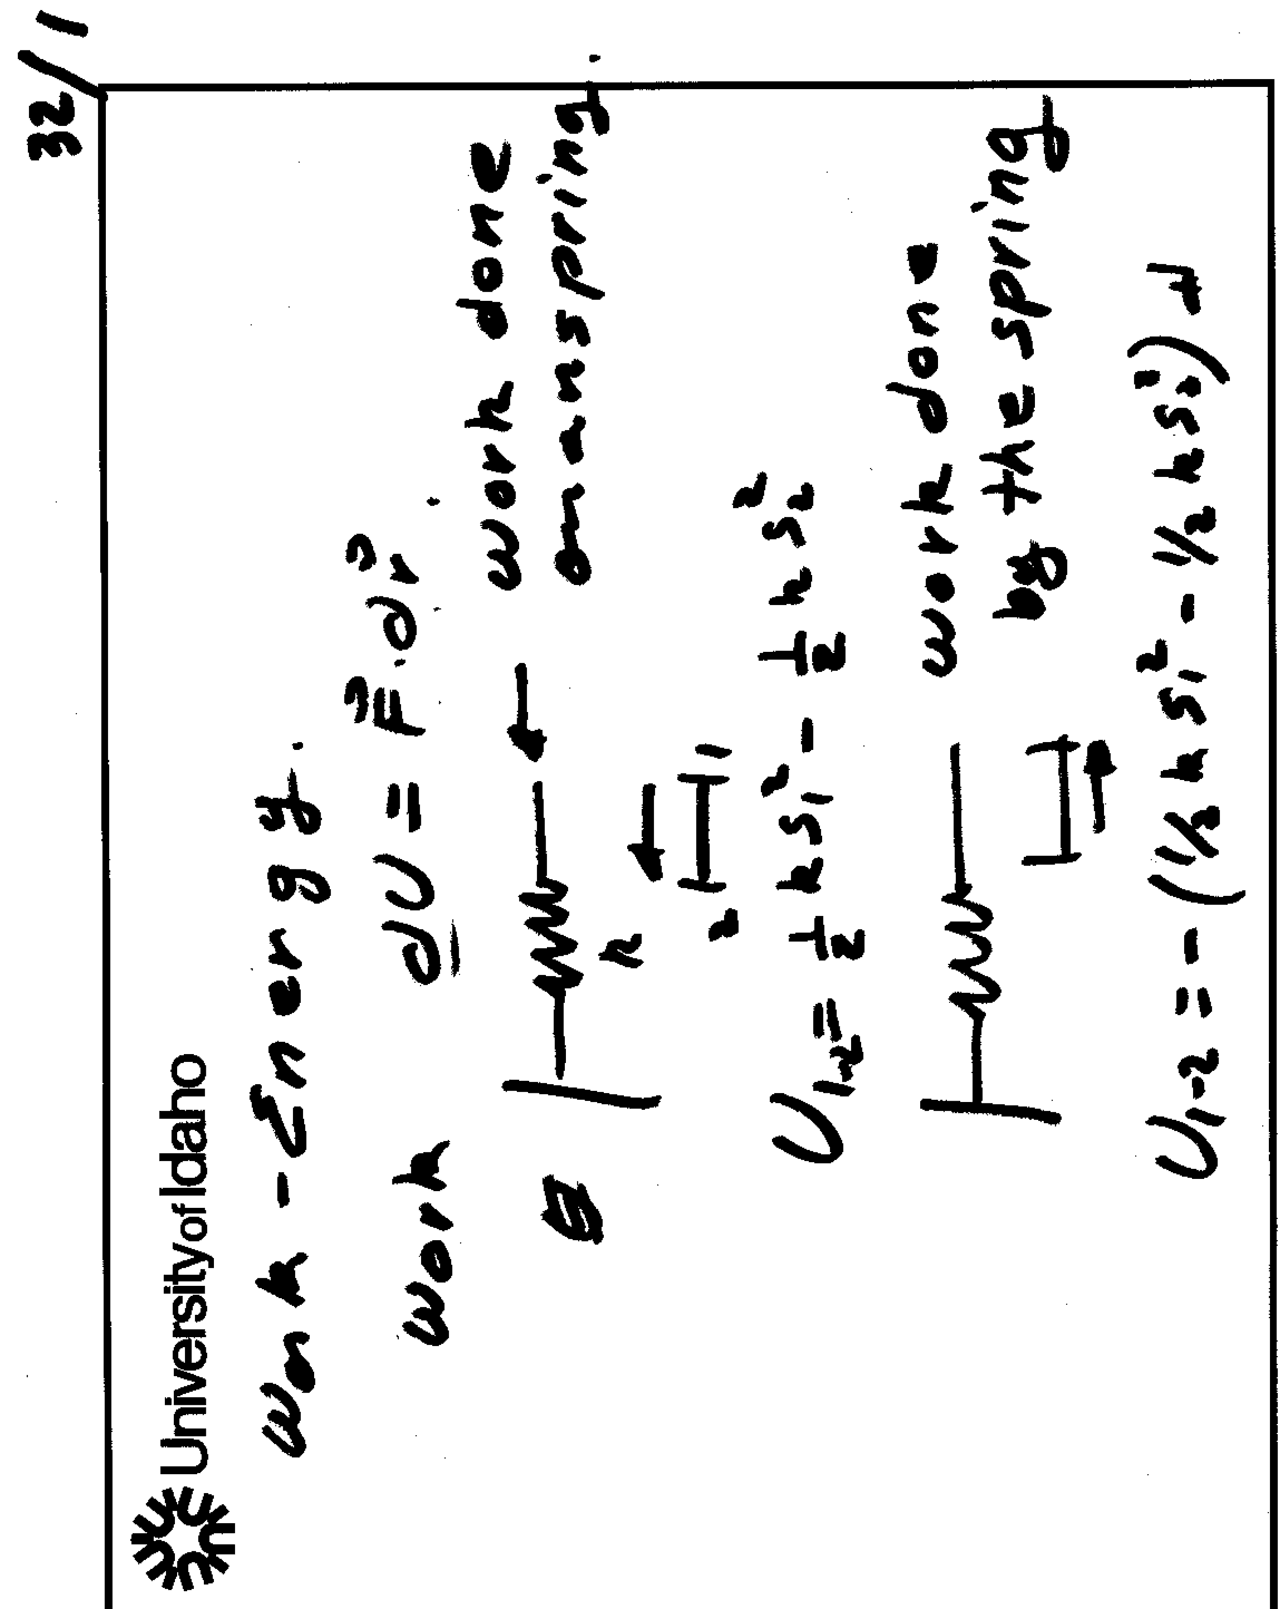 32/1
University of Idaho
Work-Energy.
Work dU = F⃗.dr⃗
work done
on a spring.
k
2 1
U₁₋₂ = 1/2 ks₁² - 1/2 ks₂²
work done
by the spring
U₁₋₂ = -(1/2 ks₁² - 1/2 ks₂²)